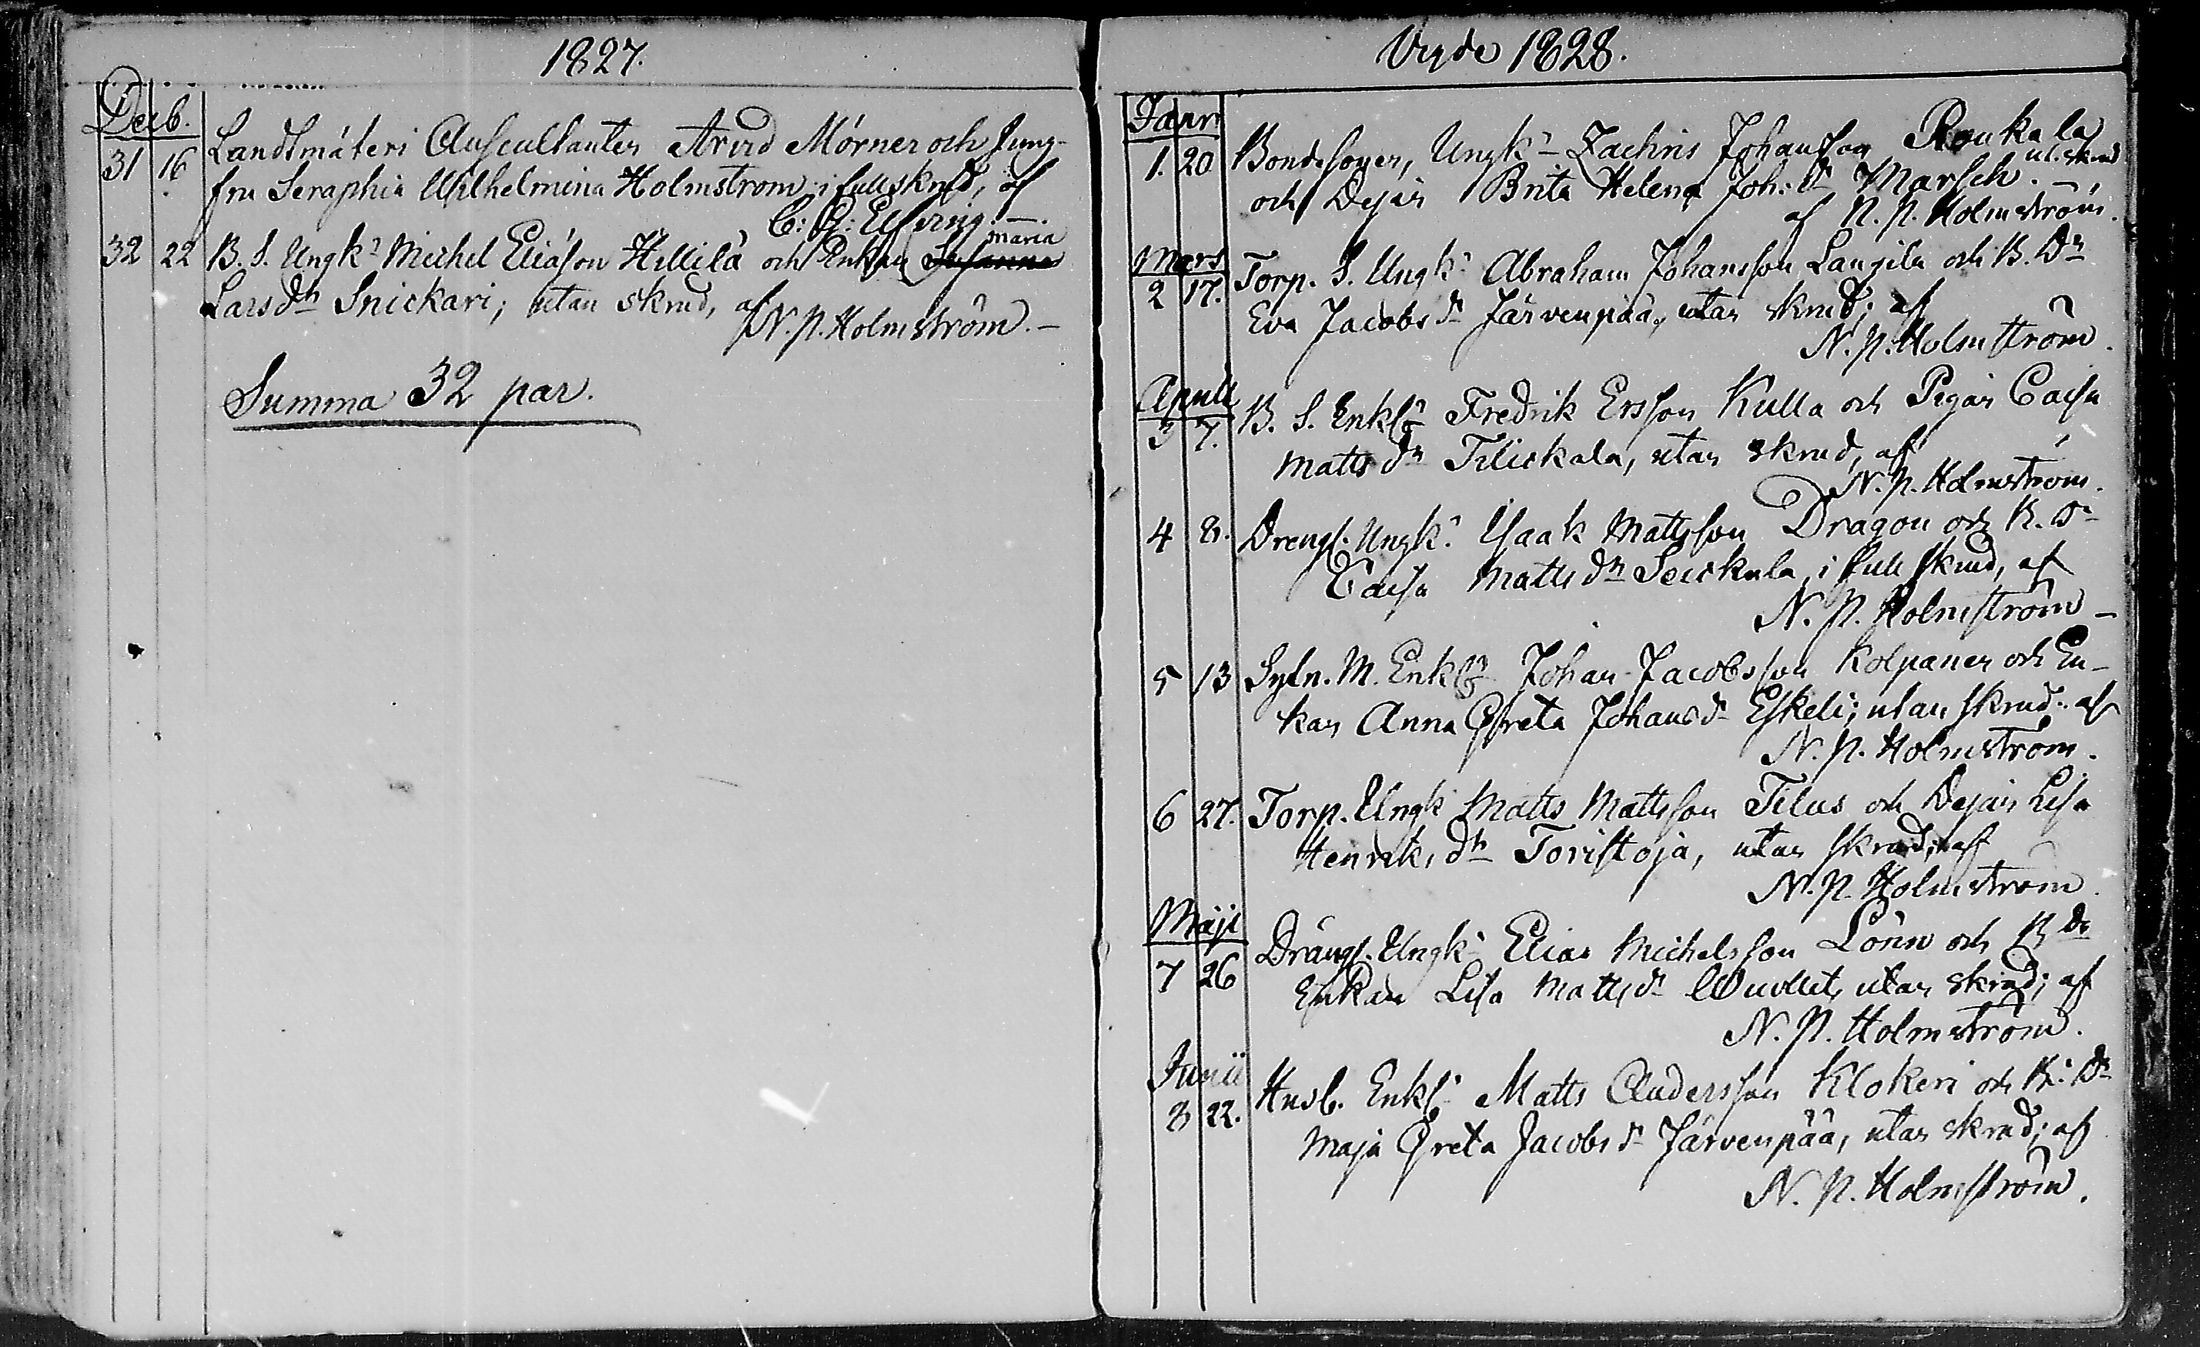 1827.
Decb.
31 16 Landtmäteri Auscultanten Arvid Mörner och Jung-
fru Seraphia Wilhelmina Holmstrom, i full skrud, af
C: G: Elfving. —.
32 22 B. S. Ungk. Michel Eliasson Hillilä och Enkan Susanna maria
Larsdr Snickari; utan skrud, af
N. P. Holmström. —
Summa 32 par.
Vigde 1828.
Janri
1. 20 Bondesonen, Ungkn Zachris Johansson Roukala
och Dejan Brita Helena Joh: dr Marsch. ut. skrud
af N. P. Holmström.
Mars
2 17. Torp. S. Ungk. Abraham Johansson Langila och B. Dr
Eva Jacobs dr Järvenpää, utan skrud; af
N. P. Holmström.
Aprill
3 7. B. S. Enkl. Fredrik Ersson Kulla och Pigan Caisa
Matts dr Tilickala, utan skrud, af
N. P. Holmström.
4 8. Drengs. Ungk. Isaak Mattsson Dragon och B. Dr
Caisa Matts dr Seickala, i full skrud, af
N. P. Holmström —
5 13 Sytn. M. Enkl. Johan Jacobsson Kolpanen och En-
kan Anna Greta Johans dr Eskeli; utan skrud. af
N. P. Holmström.
6 27. Torp. Ungk Matts Mattsson Tilus och Dejan Lisa
Henriks dr Toristoja, utan skrud; af
N. P. Holmström.
Maji
7 26 Drängs. Ungk. Elias Michelsson Lönn och B dr
Enkan Lisa Matts dr utan skrud; af
N. P. Holmström.
Junii
8 22. Husb. Enkl. Matts Andersson Klokeri och B. Dr
Maja Greta Jacobs dr Järvenpää, utan skrud; af
N. P. Holmström.